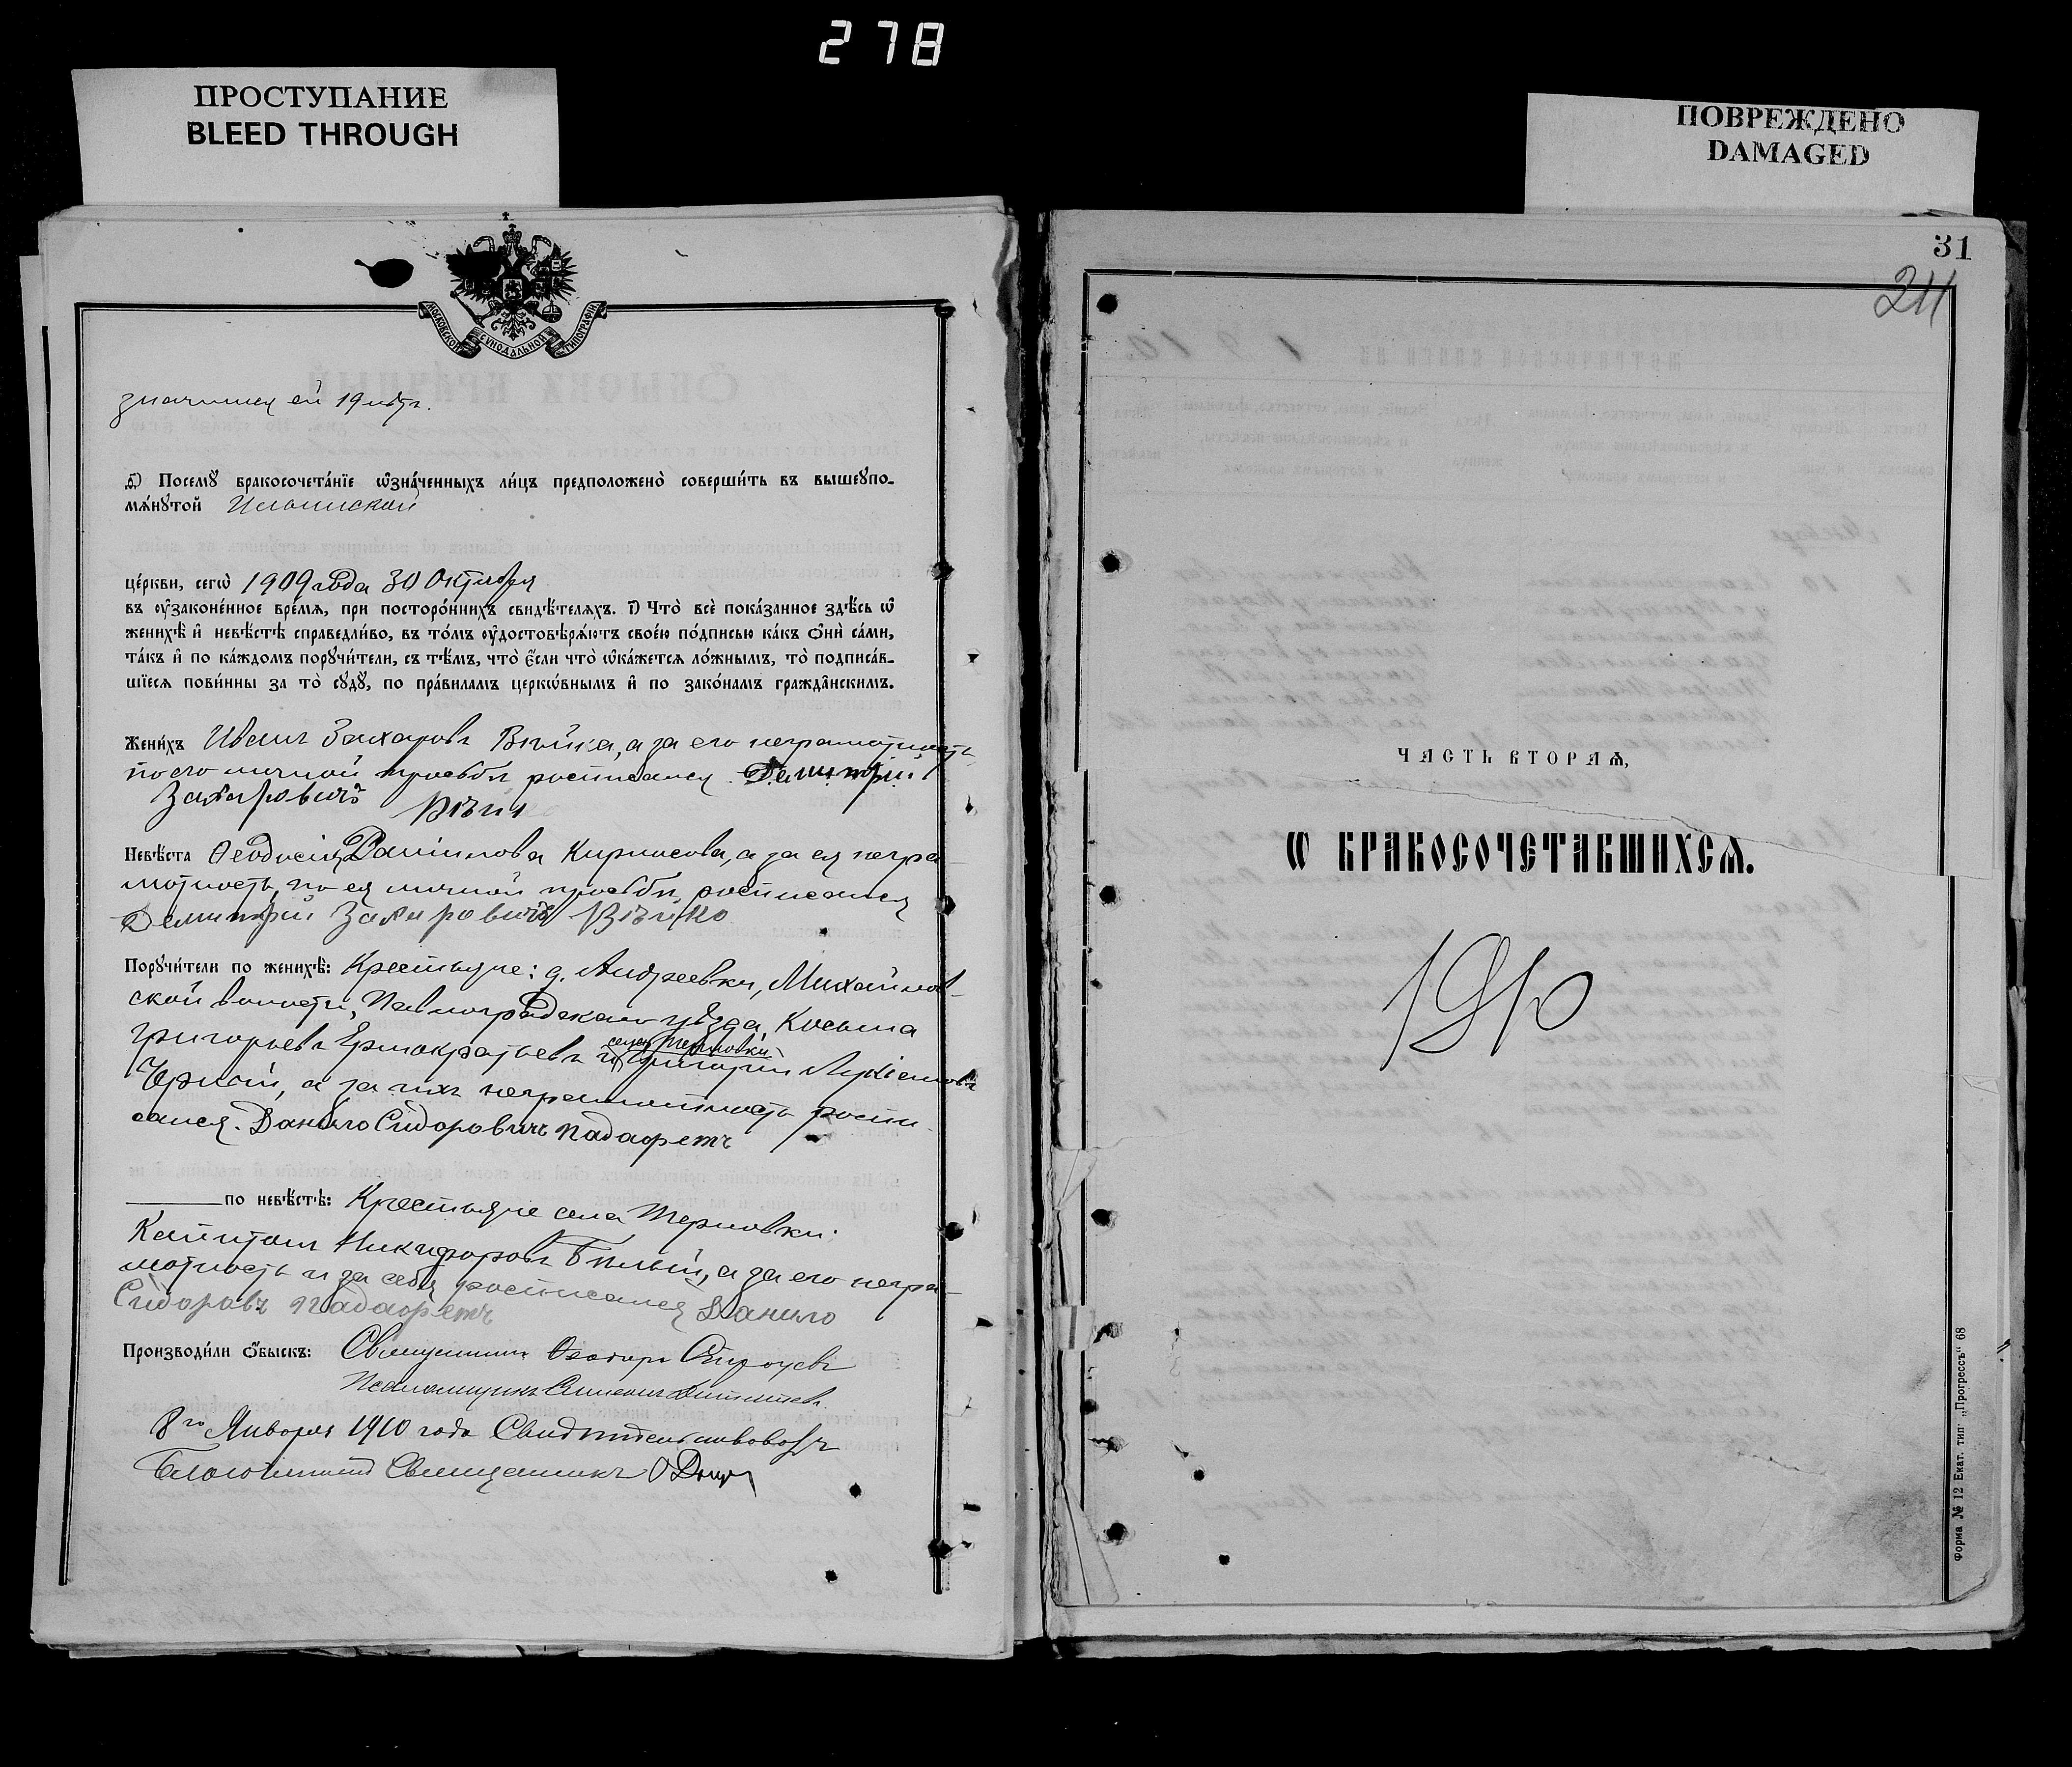 278
ПРОСТУПАНИЕ
BLEED THROUGH
ПОВРЕЖДЕНО
DAMAGED
МОСКОВСКОЙ СѴНОДАЛЬНОЙ ТИПОГРАФІИ
значится ей 19 лѣтъ.
д҃) Посемꙋ̀ бракосочета́нїе ѡ҆зна́ченныхъ ли́цъ предположено̀ соверши́ть въ вышеꙋпо-
мѧ́нꙋтой Ильинской
це́ркви, сегѡ̀ 1909 года 30 Октября
въ ᲂу҆зако́не́нное вре́мѧ, при посторо́ннихъ свидѣ́телѧхъ. і҃) Что̀ всѐ пока́занное здѣ́сь ѡ҆
женихѣ̀ и҆ невѣ́стѣ справедли́во, въ то́мъ ᲂу҆достовѣрѧ́ютъ свое́ю по́дписью ка́къ ѻ҆нѝ са́ми,
та́къ и҆ по ка́ждомъ порꙋчи́тели, съ тѣ́мъ, что̀ є҆́сли что̀ ѡ҆ка́жетсѧ ло́жнымъ, то̀ подписа́в-
шїесѧ пови́нны за то̀ сꙋдꙋ̀, по пра́виламъ церкѡ́внымъ и҆ по зако́намъ гражда̂нскимъ.
Жени́хъ Иванъ Захаровъ Вѣйка, а за его неграмотность
по его личной просьбѣ росписался Демитрій
Захаровичъ
Невѣ́ста Ѳеодосія Даніилова Кирносова, а за ея негра-
мотность, по ея личной просьбѣ, росписался
Демитрій Захаровичъ
Порꙋчи́тели по женихѣ̀: Крестьяне: д. Андреевки, Михайлов-
ской волости, Павлоградскаго уѣзда, Косьма
Григорьевъ и Григорій Лукіановъ
села Терновки
Чорный, а за ихъ неграмотность роспи-
сался. Данило Сидоровичъ
по невѣ́стѣ: Крестьяне села Терновки:
Капитонъ Никифоровъ Бѣлый, а за его негра-
мотность и за себя росписался Данило
Сидоровъ
Производи́ли ѻ҆́быскъ: Священникъ Ѳеодоръ
Псаломщикъ
8го Января 1910 года Свидѣтельствовалъ
Благочинный Священникъ
31
211
ЧАСТЬ ВТОРАѦ,
Ѡ БРАКОСОЧЕТАВШИХСѦ.
1910
Форма № 12 Екат. тип. „Прогрессъ“ 68